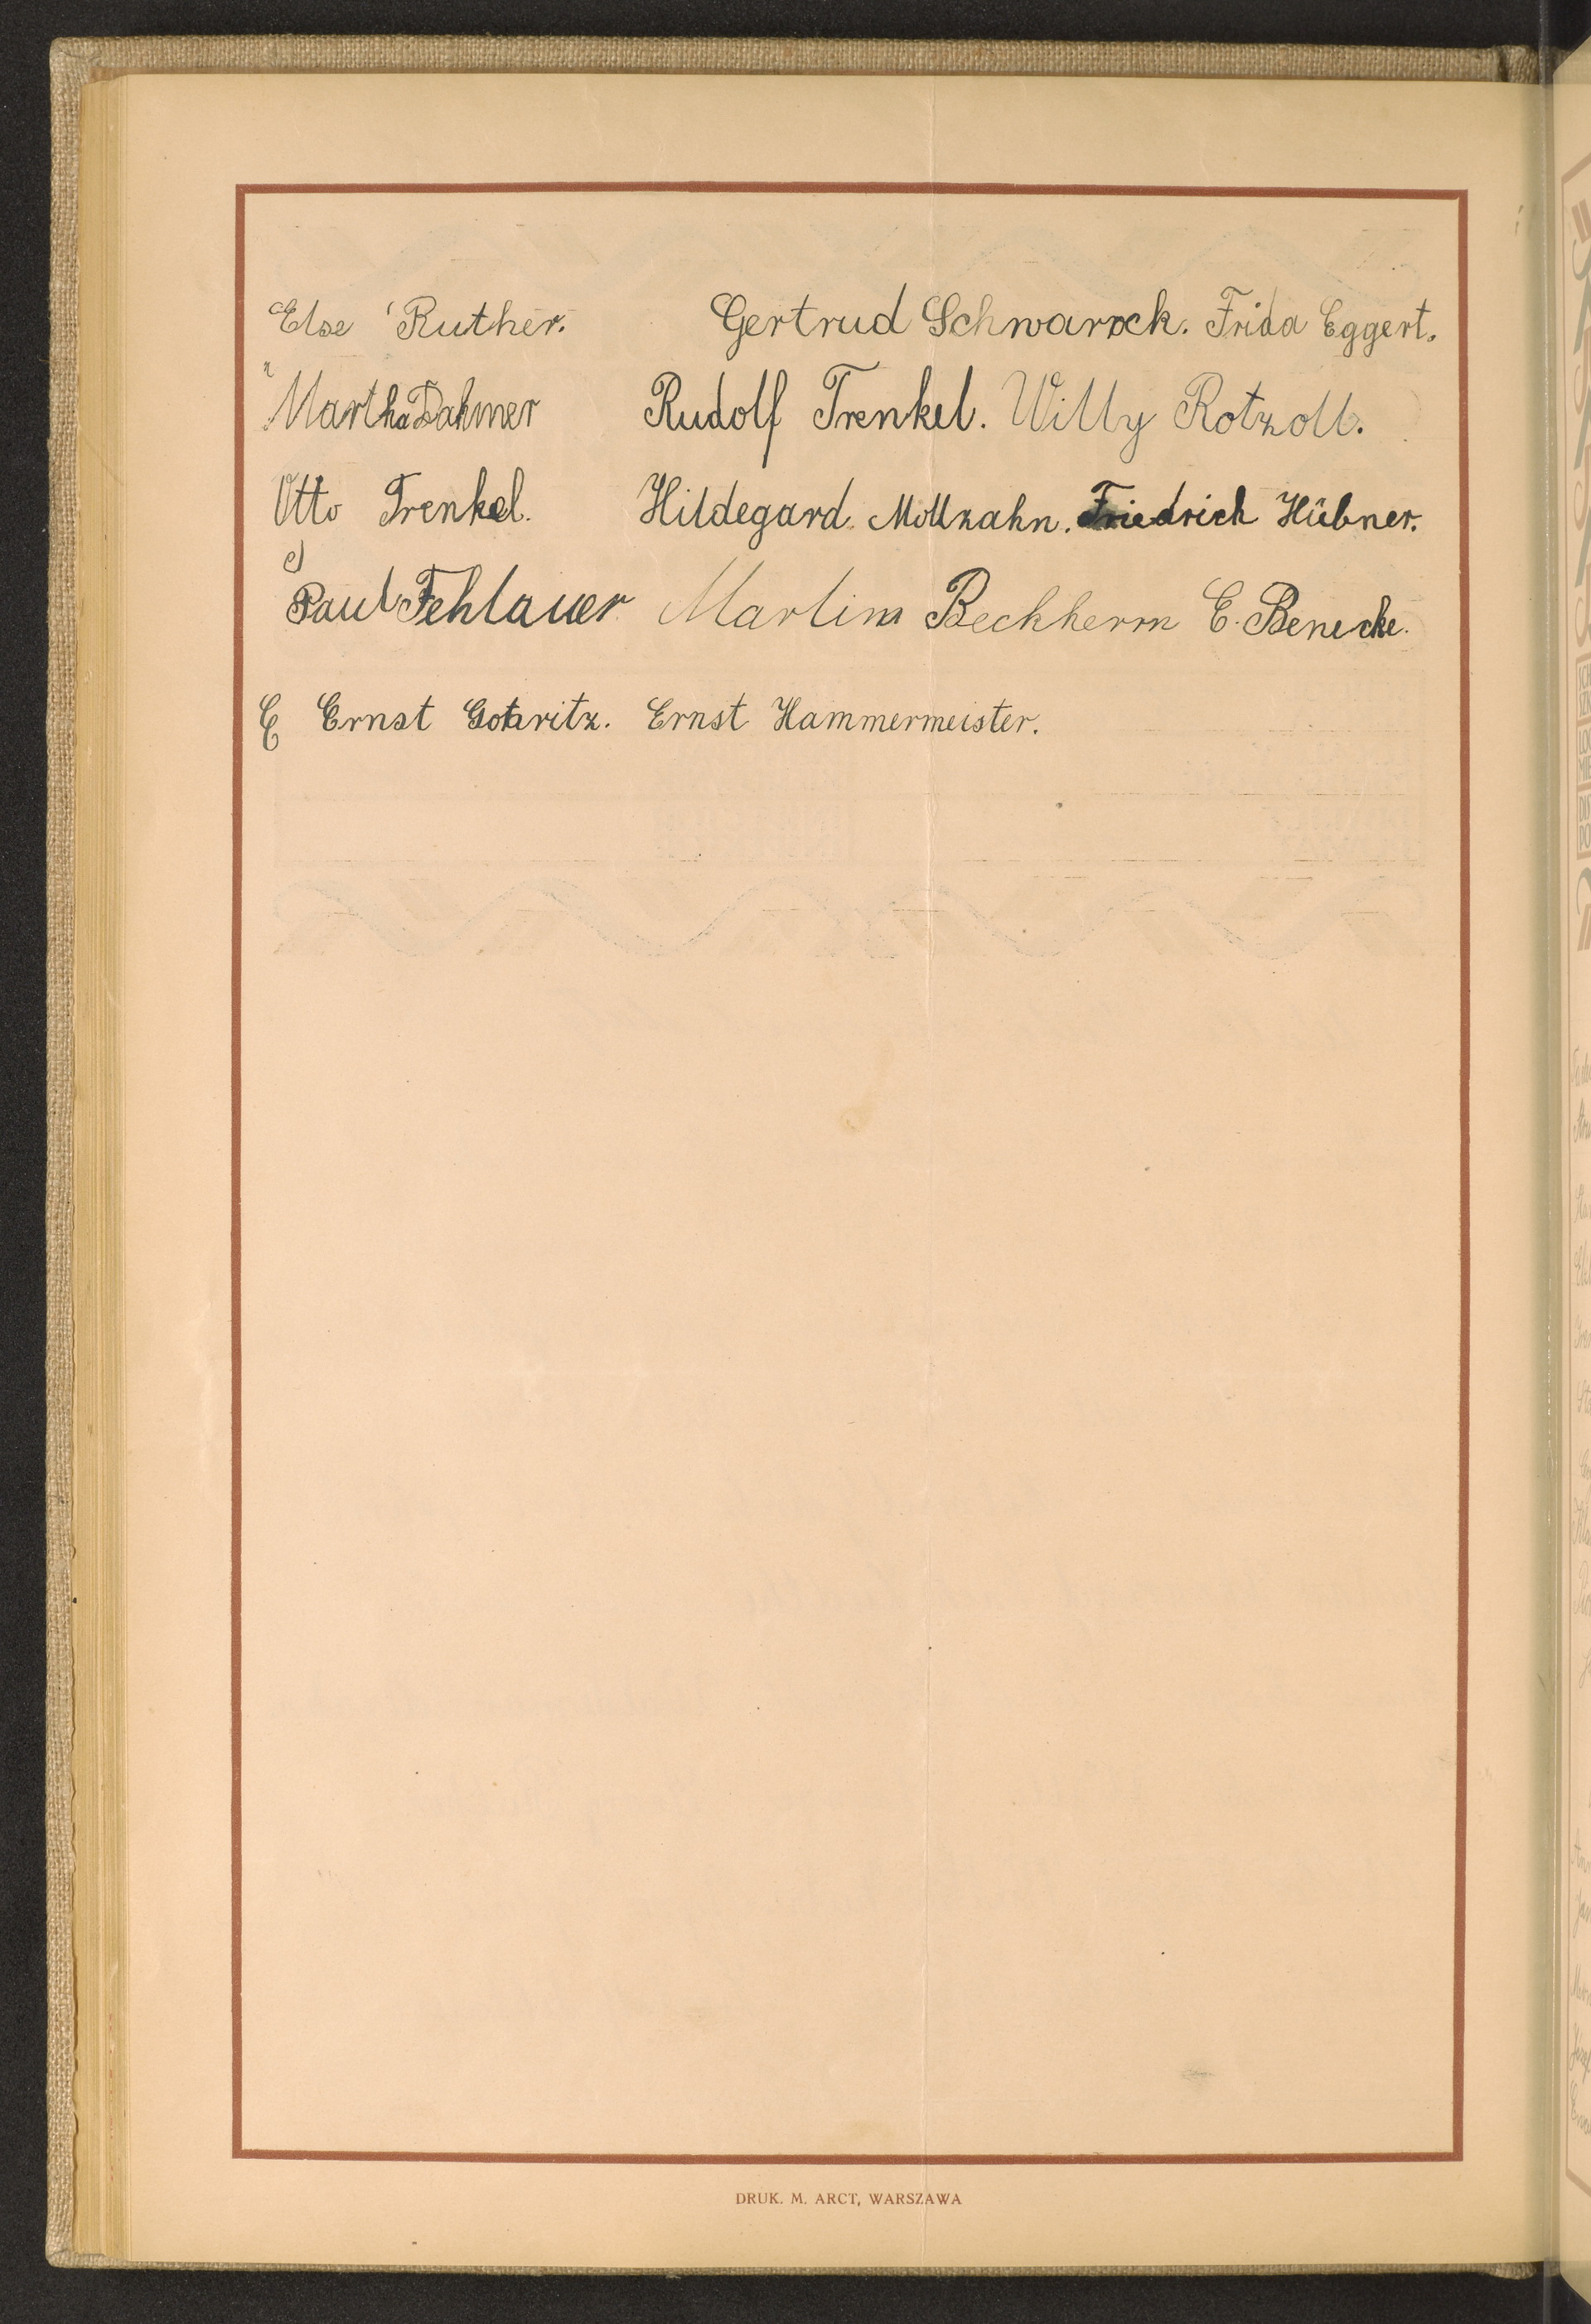 Else Ruther. Gertrud Schwarock. Frida Eggert.
Martha Dahmer Rudolf Trenkel. Willy Rotzoll.
Otto Trenkel. Hildegard Mollzahn. Friedrich Hübner.
Paul Fehlauer Martin Beckherrn E. Benecke.
E Ernst Ernst Hammermeister.
DRUK. M. ARCT, WARSZAWA